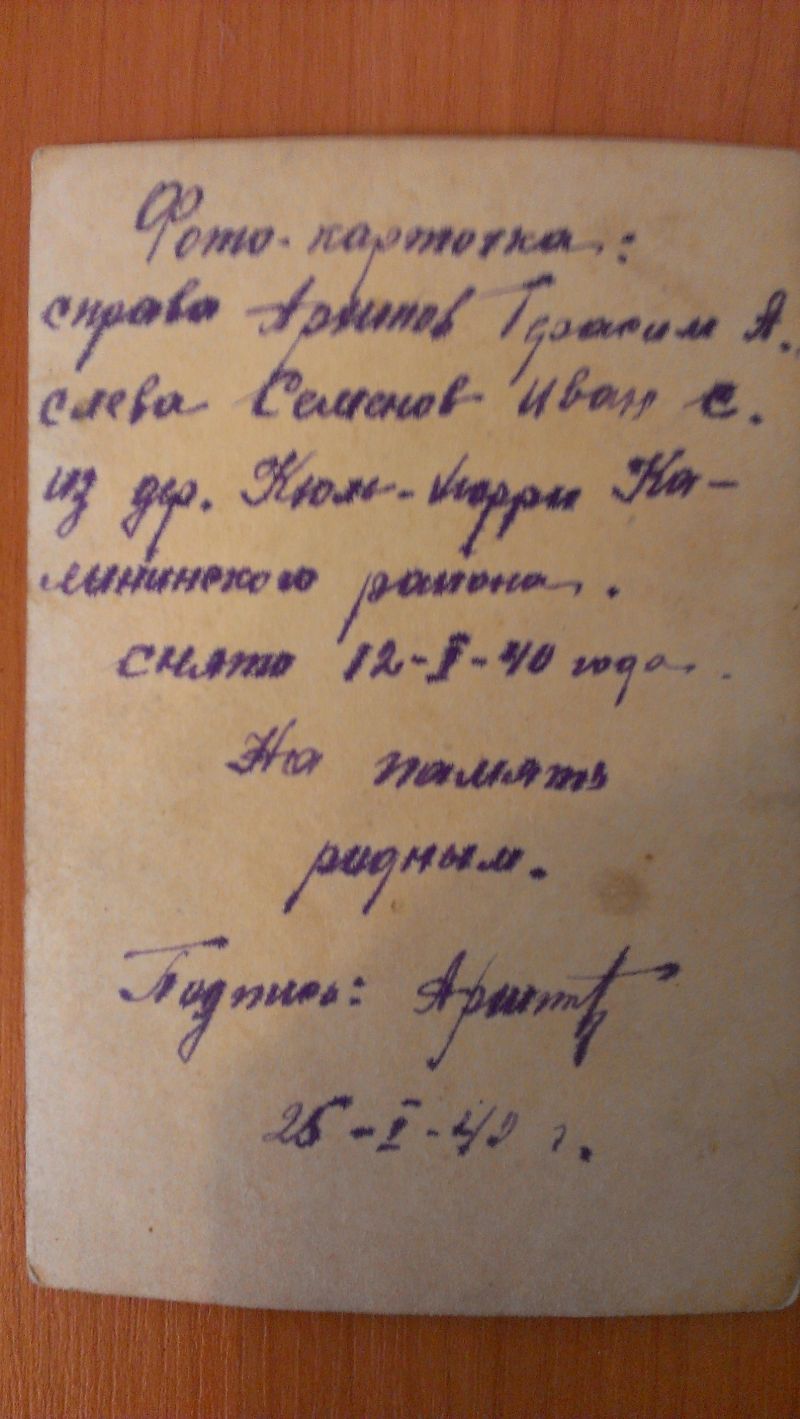 Фото-карточка:
справа Архипов Герасим А.
слева Семенов Иван С.
из дер. Кюль-Хорри Ка-
лининского района.
снято 12-II-40 года.
На память
родным.
Подпись: Архип
25-I-40 г.